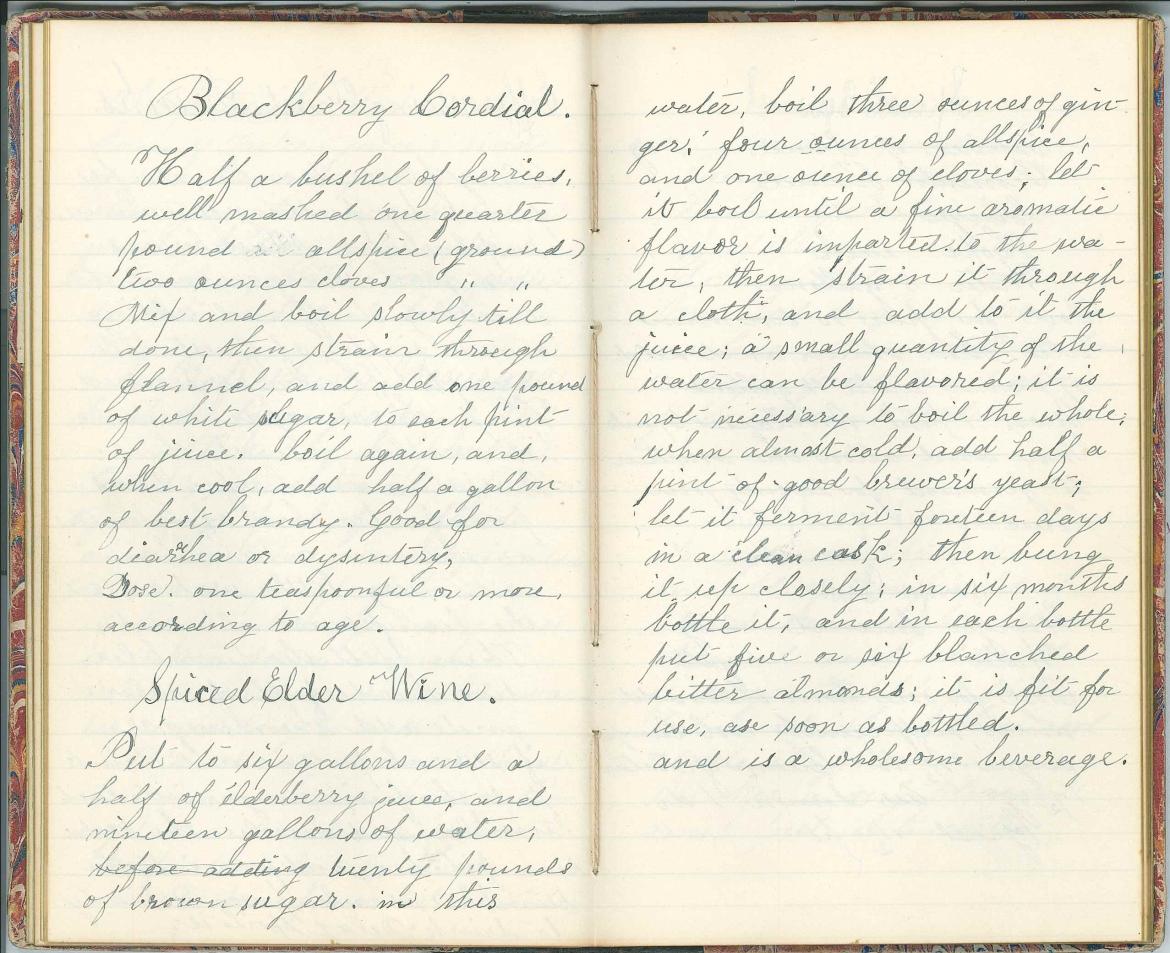 Blackberry Cordial.
Half a bushel of berries,
well mashed one quarter
pound allspice (ground)
two ounces cloves " "
Mix and boil slowly till
done, then strain through
flannel, and add one pound
of white sugar, to each pint
of juice. boil again, and,
when cool, add half a gallon
of best brandy. Good for
diarrhea or dysintery,
Dose. one teaspoonful or more,
according to age.
Spiced Elder Wine.
Put to six gallons and a
half of elderberry juice, and
nineteen gallons of water,
before adding twenty pounds
of brown sugar. in this
water, boil three ounces of gin-
ger; four ounces of allspice,
and one ounce of cloves; let
it boil until a fine aromatic
flavor is imparted to the wa-
ter, then strain it through
a cloth, and add to it the
juice; a small quantity of the
water can be flavored; it is
not necessary to boil the whole;
when almost cold, add half a
pint of good brewer's yeast;
let it ferment foreteen days
in a clean cask; then bung
it up closely; in six months
bottle it, and in each bottle
put five or six blanched
bitter almonds; it is fit for
use, ase soon as bottled.
and is a wholesome beverage.